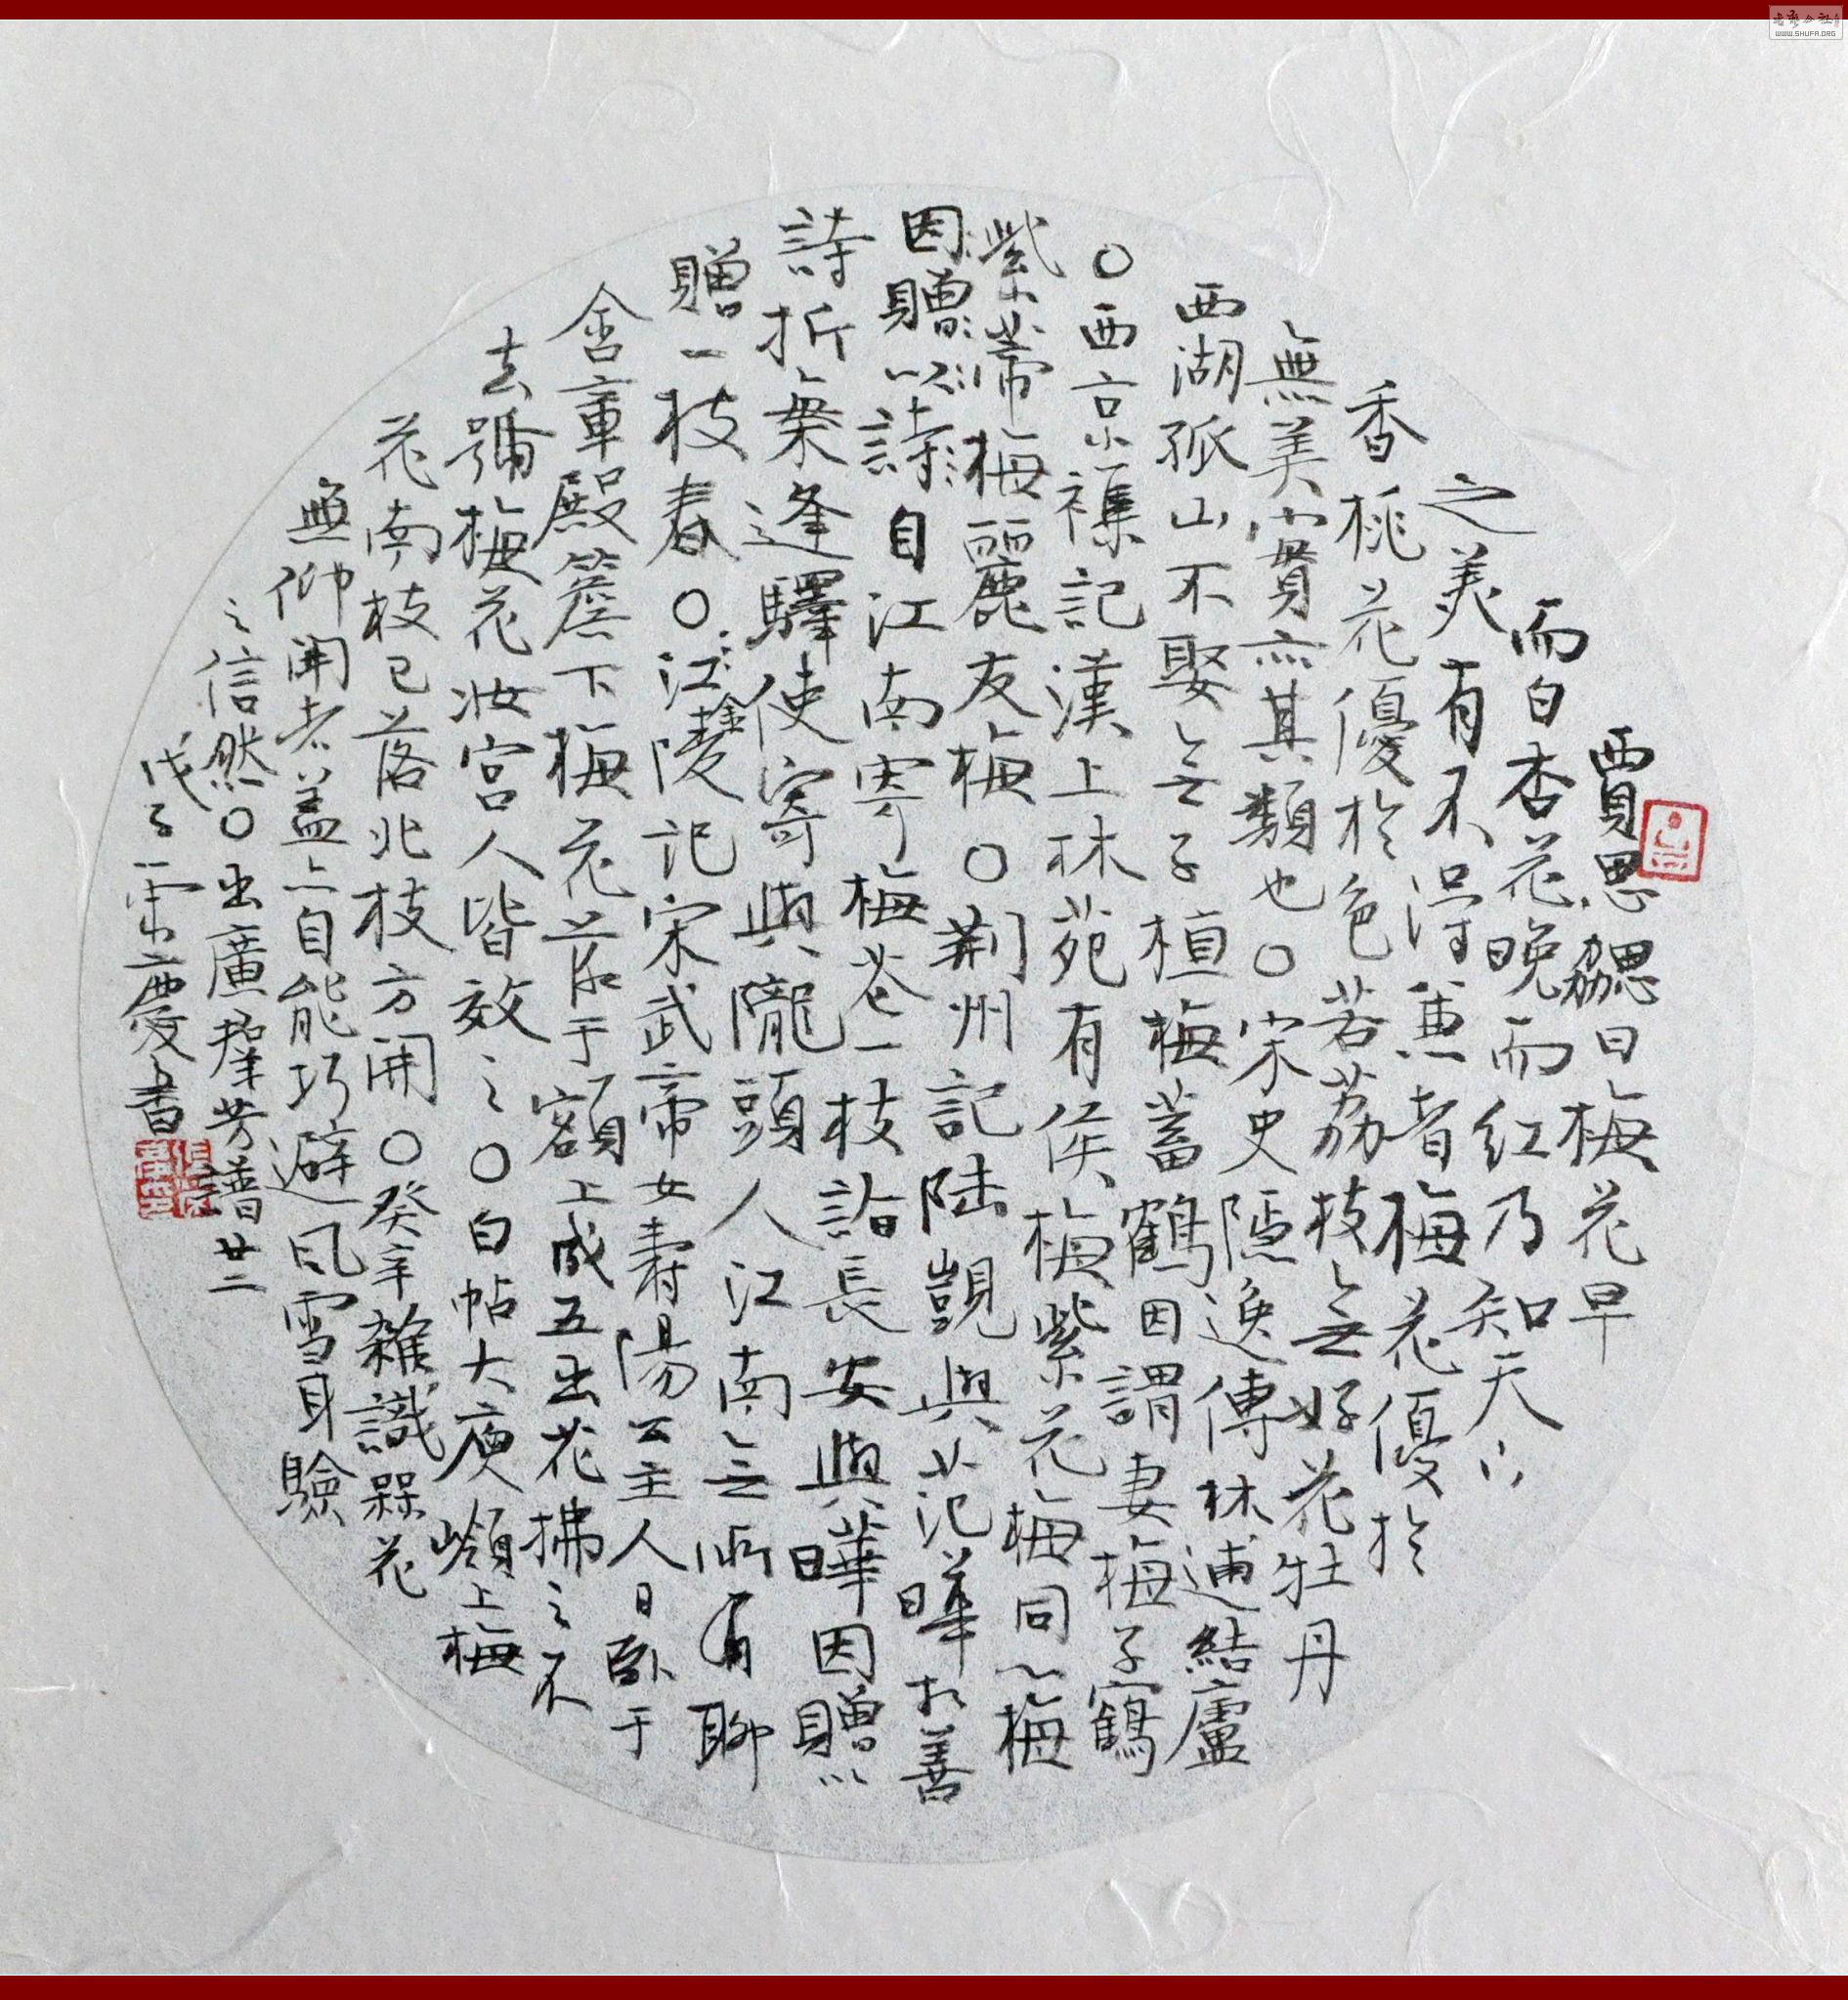 賈思勰曰梅花早
而白杏花晚而紅乃知天下
之美有不得兼者梅花優於
香桃花優於色若荔枝無好花牡丹
無美實亦其類也〇宋史隱逸傳林逋結廬
西湖孤山不娶無子植梅蓄鶴因謂妻梅子鶴
〇西京襍記漢上林苑有侯梅紫花梅同心梅
紫蒂梅麗友梅〇荆州記陸凱與范曄相善
因贈以詩自江南寄梅花一枝詣長安與曄因贈以
詩折梅逢驛使寄與隴頭人江南無所有聊
贈一枝春〇江陵記宋武帝女壽陽公主人日臥于
含章殿簷下梅花落于額上成五出花拂之不
去號梅花妝宮人皆效之〇白帖大庾嶺上梅
花南枝已落北枝方開〇癸辛雜識槑花
無仰開者盖亦自能巧避風雪耳驗
之信然〇出廣羣芳譜廿二
戊子 慶書
WWW.SHUFA.ORG